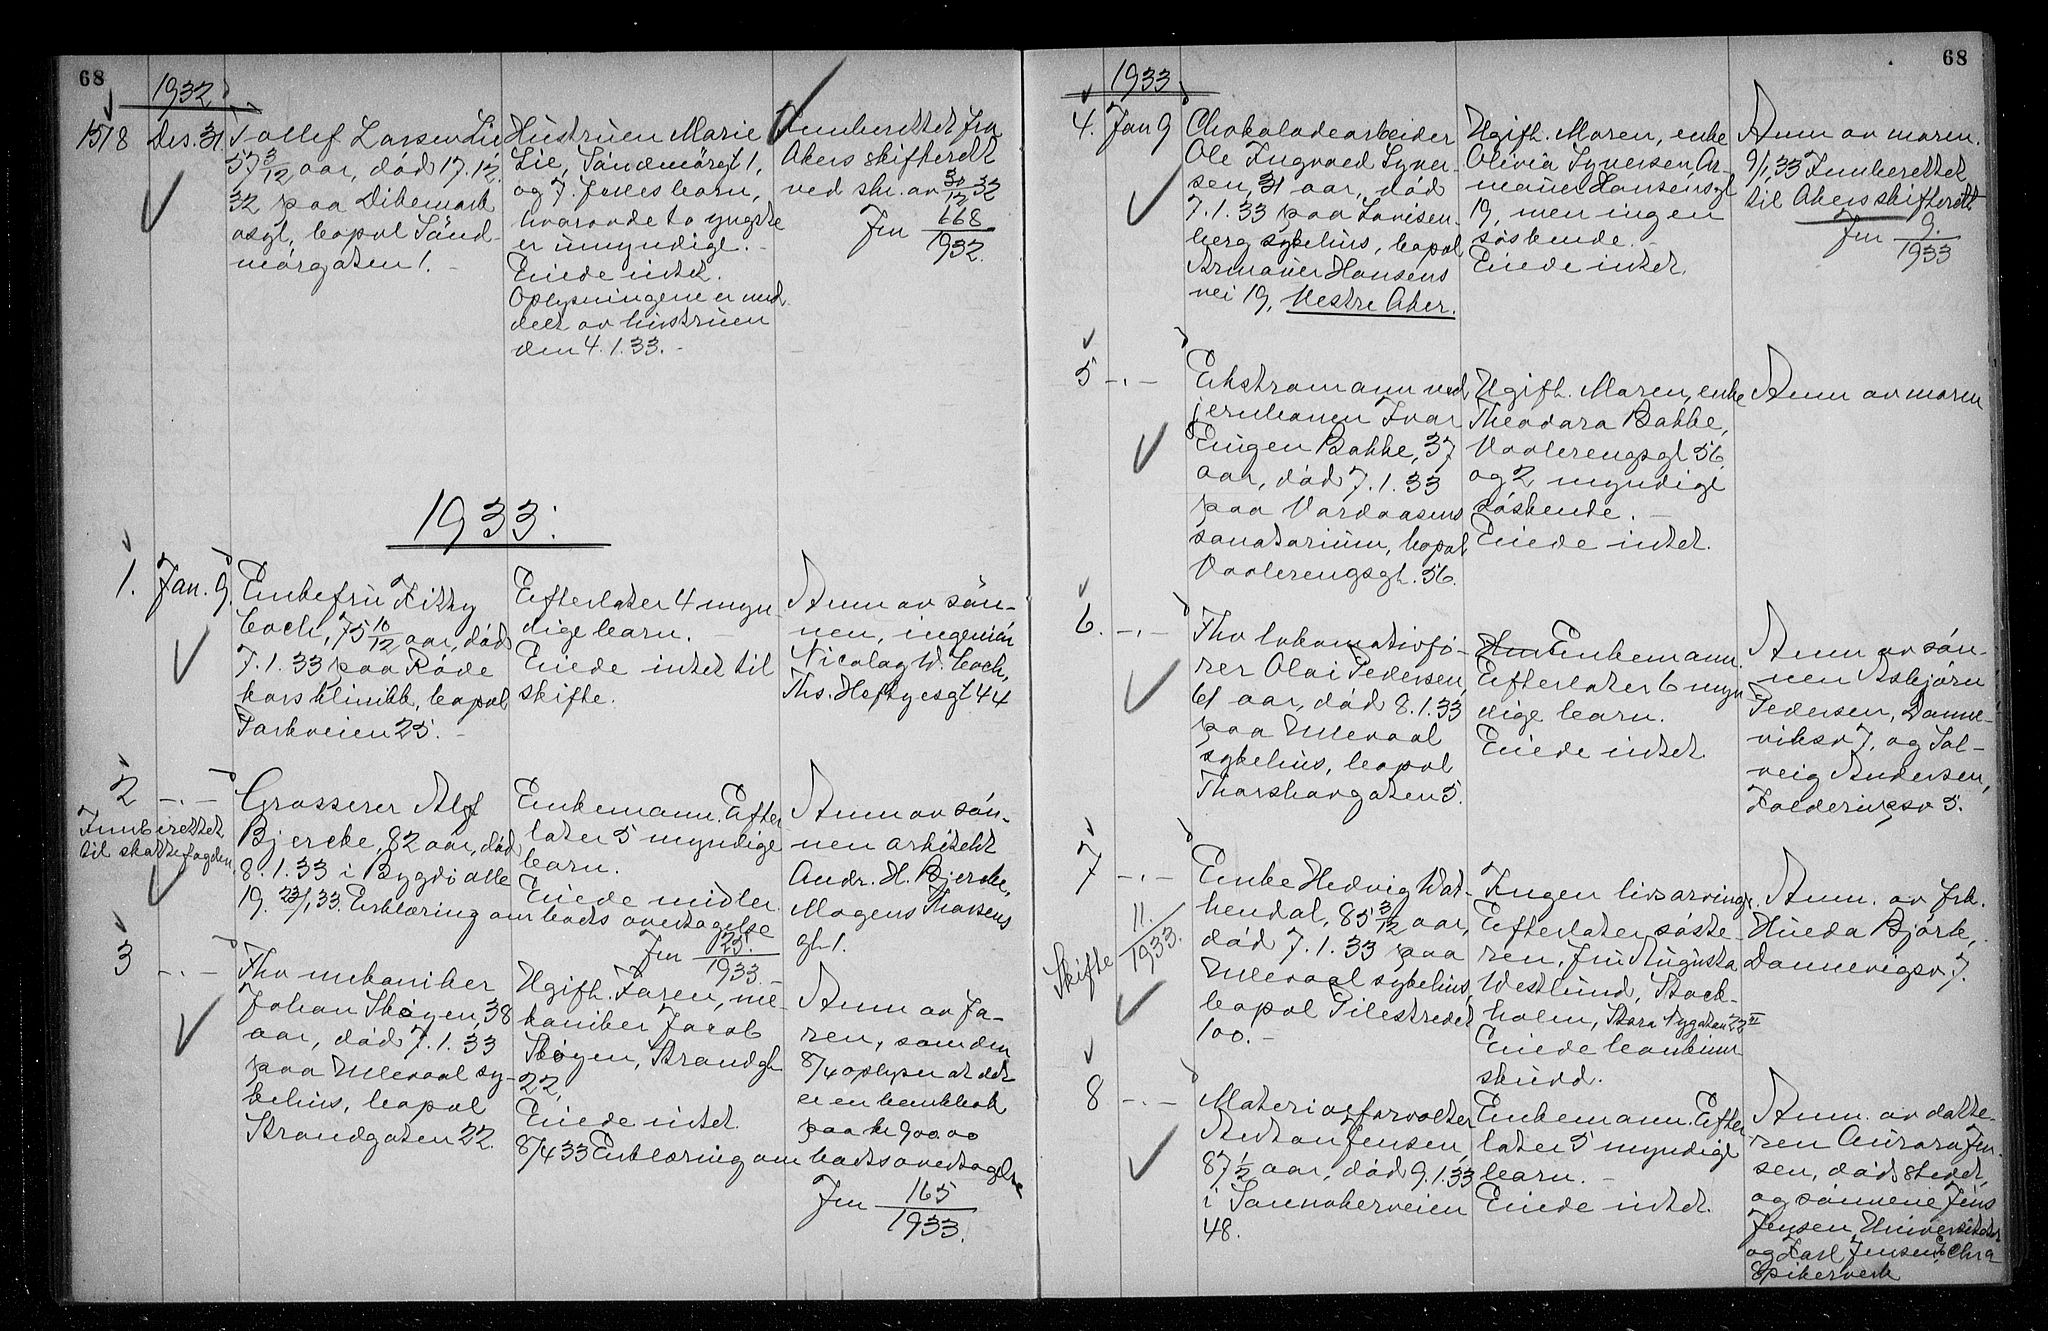 68
1932
1518
Des. 31.
Tollef Larsen Lie
57 3/12 aar, død 17.12.
32 paa Dikemark
asyl, bopel Sönd-
mörgaten 1. -
Hustruen Marie
Lie, Söndmörgt 1,
og 7 fælles barn,
hvorav de to yngste
er umyndige. -
Eiede intet.
Oplysningene er med-
delt av hustruen
den 4.1.33. -
Innberettet fra
Akers skifterett
ved skr. av 30/12 32
Jnr 668/1932.
1933.
1.
Jan. 9.
Enkefru Kitty
Coch, 75 10/12 aar, död
7.1.33 paa Röde
kors klinikk, bopel
Parkveien 25. -
Efterlater 4 myn-
dige barn. -
Eiede intet til
skifte.
Anm av søn-
nen, ingeniör
Nicolay W. Coch,
Ths. Heftyesgt 44
2
-.-
Innberettet
til skattefogden.
Grosserer Alf
Bjercke, 82 aar, död
8.1.33 i Bygdö alle
19. 23/1,33. Erklæring om boets overtagelse
Jnr 25/1933. -
Enkemann. Efter-
later 5 myndige
barn.
Eiede midler.
Anm av søn-
nen arkitekt
Andr. H. Bjercke,
Mogens Thorsens
gt. 1.
3
-.-
Fhv mekaniker
Johan Skøyen, 38
aar, död 7.1.33
paa Ullevaal sy-
kehus, bopel
Strandgaten 22.
Ugift. Faren, me-
kaniker Jacob
Skøyen, Strandgt
22.
Eiede intet.
8/4 33 Erklæring om boets overtagelse
Jnr 165/1933.
Anm av fa-
ren, som den
8/4 oplyser at det
er en bankbok
paa kr 900.00
68
1933.
4.
Jan 9
Chokoladearbeider
Ole Ingvald Syver-
sen, 31 aar, död
7.1.33 paa Lovisen-
berg sykehus, bopel
Armauer Hansens
vei 19, Vestre Aker.
Ugift. Moren, enke
Olivia Syversen, Ar-
mauer Hansensgt
19, men ingen
søskende. -
Eiede intet.
Anm av moren.
9/1,33 Innberettet
til Akers skifterett
Jnr 9./1933
5
-.-
Ekstramann ved
jernbanen Ivar
Eugen Bakke, 37
aar, død 7.1.33
paa Vardaasens
sanatorium, bopel
Vaalerengsgt. 56.
Ugift. Moren, enke
Theodora Bakke,
Vaalerengsgt 56,
og 2 myndige
søskende. -
Eiede intet.
Anm av moren
6.
-.-
Fhv lokomotivfø-
rer Olai Pedersen,
61 aar, død 8.1.33
paa Ullevaal
sykehus, bopel
Thorshavgaten 5.
Enkemann.
Efterlater 6 myn
dige barn.
Eiede intet.
Anm av søn-
nen Asbjørn
Pedersen, Danne-
viksv 7, og Sol-
veig Andersen,
Falderingsv 5.
7
-.-
Skifte 11./1933.
Enke Hedvig Wat-
hendal, 85 3/12 aar,
død 7.1.33 paa
Ullevaal sykehus,
bopel Pilestredet
100. -
Ingen livsarvinger.
Efterlater søste-
ren, fru Augusta
Westlund, Stock-
holm, Stora Nygatan 22 III
Eiede bankinn-
skudd.
Anm. av frk.
Hulda Björk,
Dannevigsv. 7.
8
-.-
Materialforvalter
Anton Jensen,
87 1/2 aar, død 9.1.33
i Sannakerveien
48.
Enkemann. Efter-
later 5 myndige
barn. -
Eiede intet.
Anm. av datte-
ren Aurora Jen-
sen, døds stedet,
og sønnene Jens
Jensen Universitetet
og Karl Jensen, Chra
Spikerverk